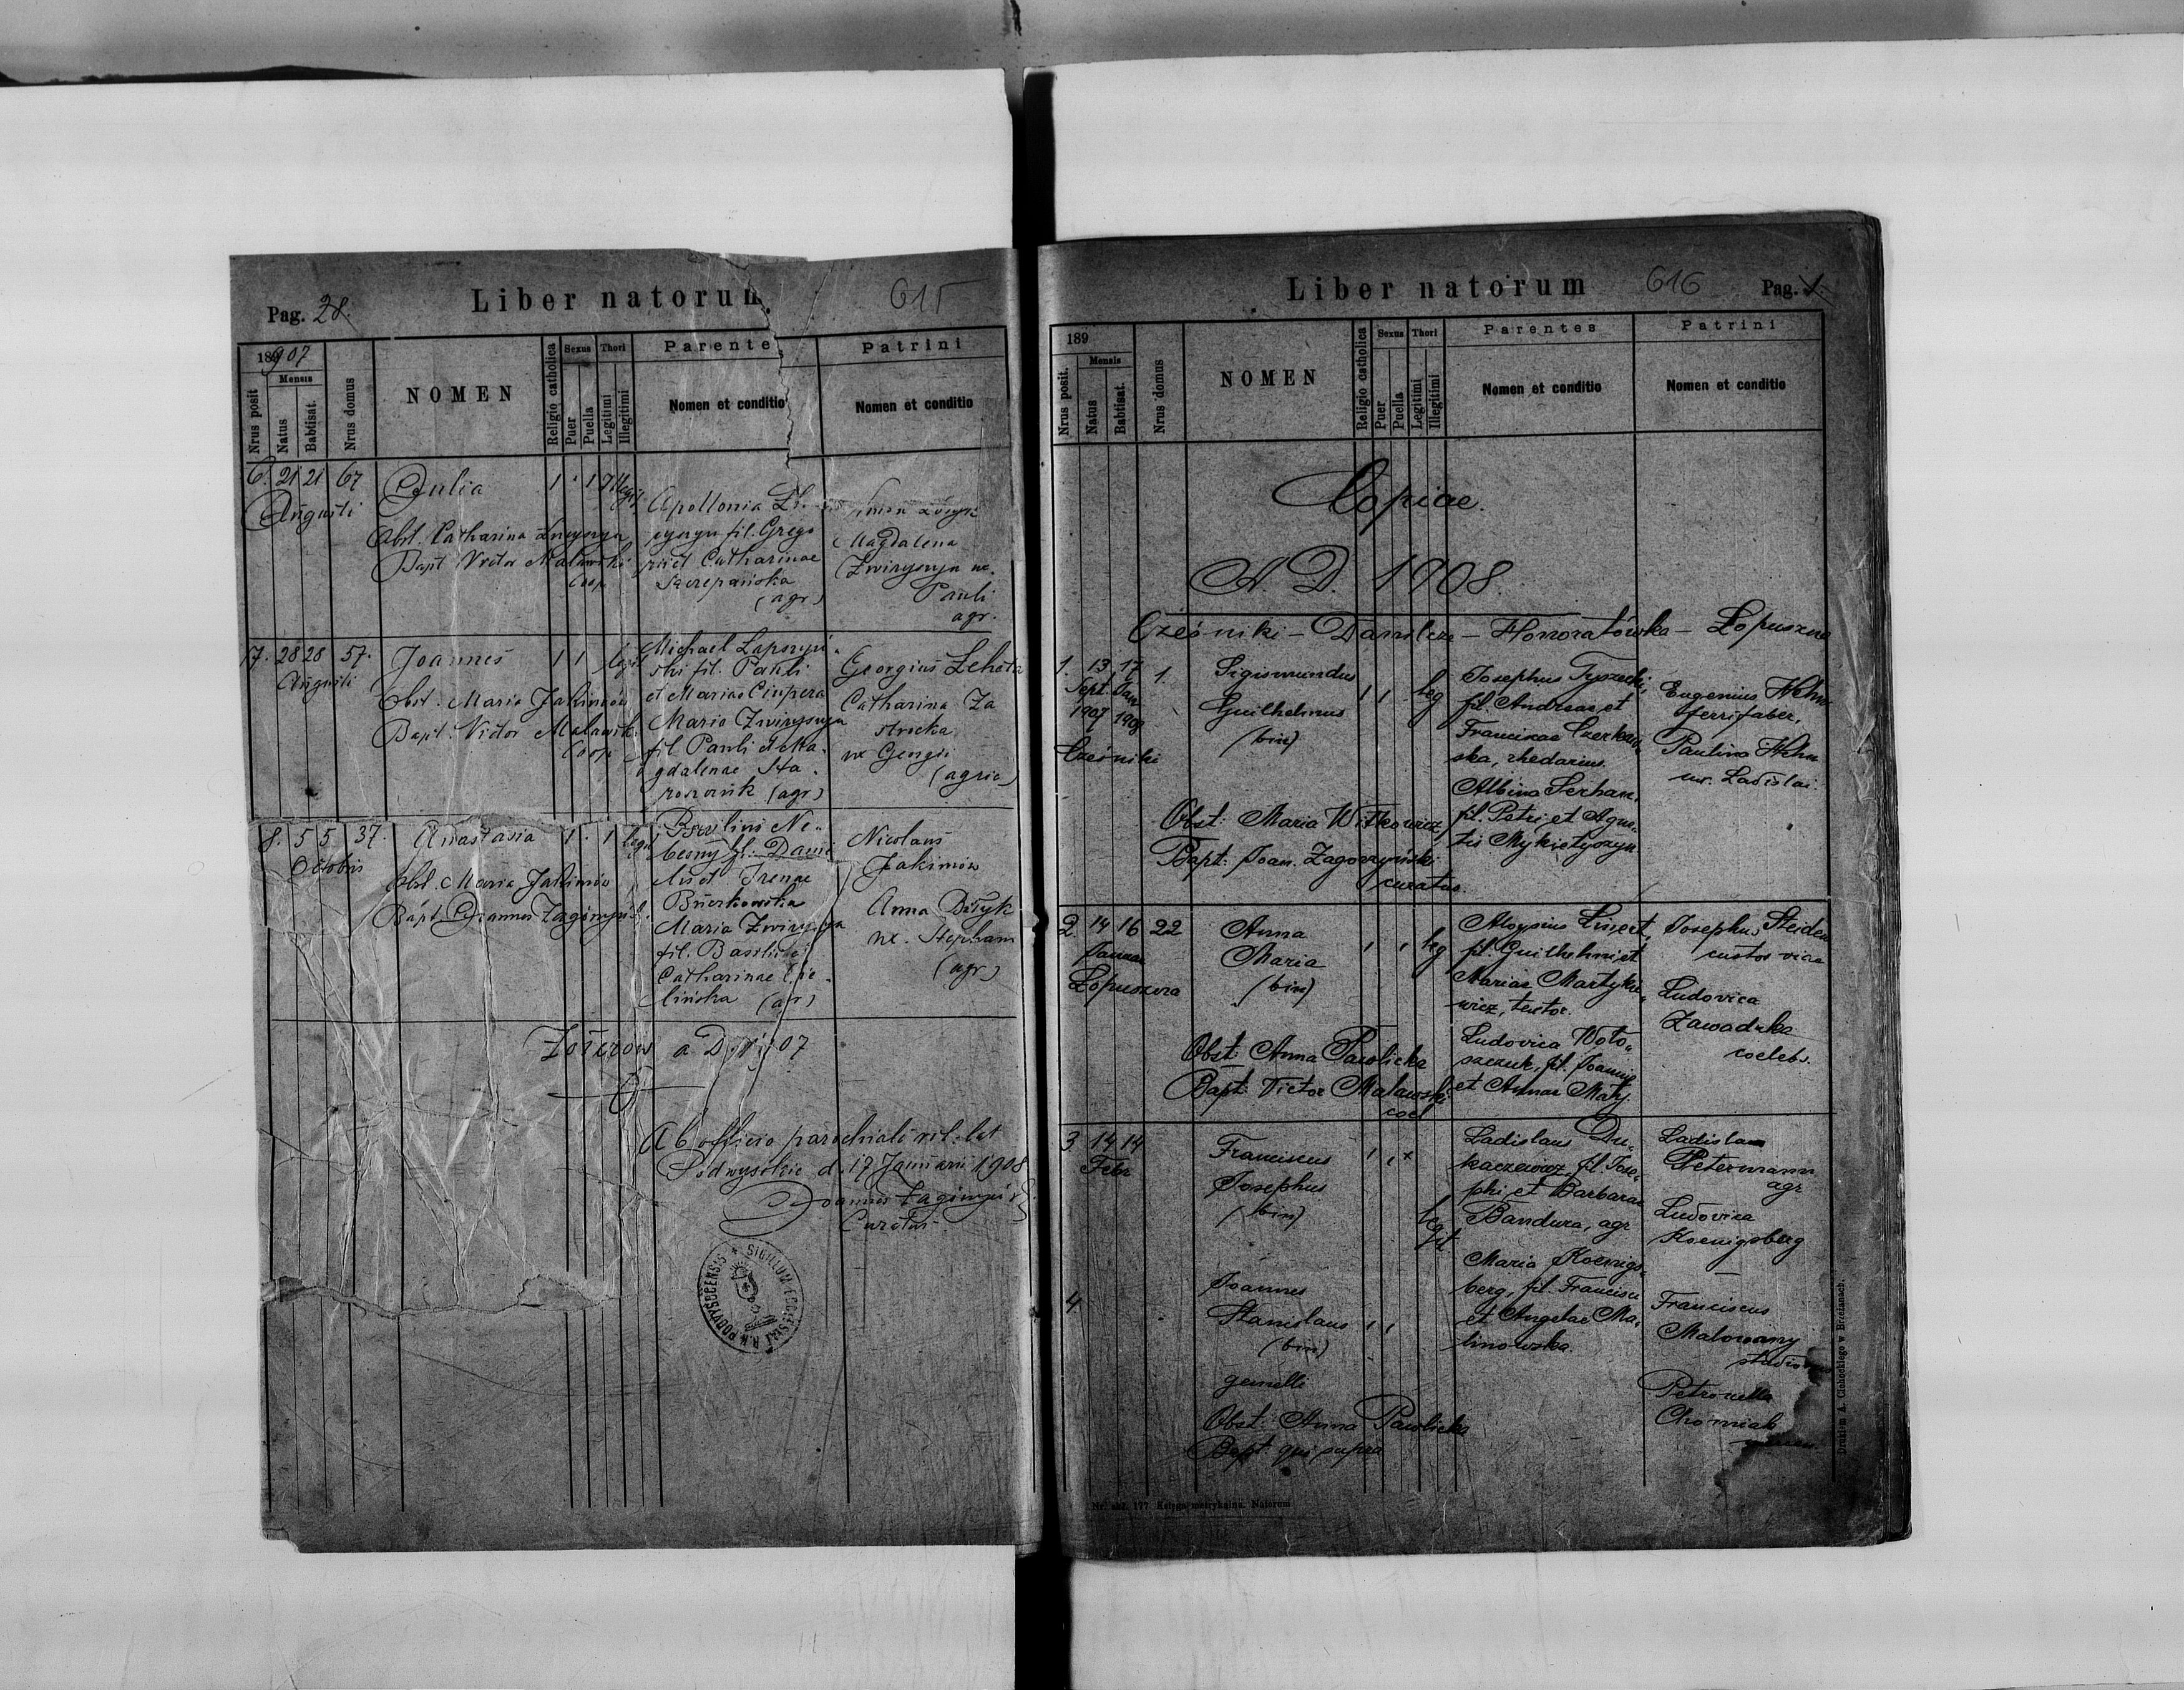 Pag. 28.
Liber natorum
615
1907
Nrus posit
Mensis
Natus
Babtisat.
Nrus domus
NOMEN
Religio catholica
Sexus
Puer
Puella
Thori
Legitimi
Illegitimi
Parente
Nomen et conditio
Patrini
Nomen et conditio
6. 21 21 67
Augusti
Julia
1 1 Illegit.
Obst. Catharina
Bapt Victor Malawski
Coop
Apollonia
fil. Grego
rii et Catharinae
Szczepańska
(agr)
Magdalena
Zwirynya ux.
Pauli
agr.
17. 28 28 57.
Augusti
Joannes
1 1 legit
Obst. Maria Jakimów
Bapt. Victor Malawsk.
Coop
Michael Lapszyń
ski fil. Pauli
et Mariae Ciupera
Maria Zwirynya
fil Pauli et Ma
gdalenae Sta
(agr)
Georgius Lehota
Catharina Za
strucka
ux Georgii
(agric)
8. 5 5 37.
Octobris
Anastasia
1 1 legit
Obst. Maria Jakimów
Bapt. Joannes
Basilius Ne
besny fil. Dani
elis et Irenae
Bńerkowska
Maria
fil. Basilii et
Catharinae Chie
lińska (agr)
Nicolaus
Jakimów
Anna
ux. Stephani
(agr)
a D. 1907
Ab officio parochiali rit. lat
Podwysokie d. 17 Januarii 1908
Joannes
Curatus
SIGILLUM ECCLESIAE R. L. PODWYSOCENSIS
Liber natorum
616
Pag. 1.
189
Nrus posit.
Mensis
Natus
Babtisat.
Nrus domus
NOMEN
Religio catholica
Sexus
Puer
Puella
Thori
Legitimi
Illegitimi
Parentes
Nomen et conditio
Patrini
Nomen et conditio
Copiae.
A. D. 1908.
Cześniki – Danilcze – Honoratówka – Łopuszna
1. 13 17 1.
Sept. Jan
1907 1908
Cześniki
Sigismundus
Guilhelmus
(bin)
1 1 leg
Obst: Maria Witkowicz,
Bapt: Joan. Zagorzyński
curatus.
Josephus Tyszecki,
fil. Andreae, et
Franciscae Czerkaw
ska, rhedarius.
Albina Serhan,
fil. Petri, et Agne
tis Mykietyszyn
Eugenius Hehn
ferrifaber,
Paulina Hehn
ux. Ladislai.
2. 14 16 22
Januar
Łopuszna
Anna
Maria
(bin)
1 1 leg
Obst: Anna Pawlicka
Bapt: Victor Malawski
coel
Aloysius Linert,
fil. Guilhelmi, et
Mariae Martyke
wicz, textor.
Ludovica Woło
szczuk, fil. Joannis
et Annae Mały.
Josephus Steiden
custos viae
Ludovica
Zawadzka
coelebs.
3 14 14
Febr
Franciscus
Josephus
(bin)
legit
Ladislaus Du
kaczewicz, fil. Jose
phi et Barbarae
Bandura, agr
Maria Koenigs
berg, fil. Francisci
et Angelae Ma
linowska.
Ladislaus
Petermann
agr
Ludovica
Koenigsberg
4.
Joannes
Stanislaus
(bin)
gemelli
Obst: Anna Pawlicka
Bapt: qui supra
Franciscus
Malowany
Petronella
Chomiak
Nr. 177. Księga metrykalna. Natorum
Drukiem A. Cichockiego w Brzeżanach.